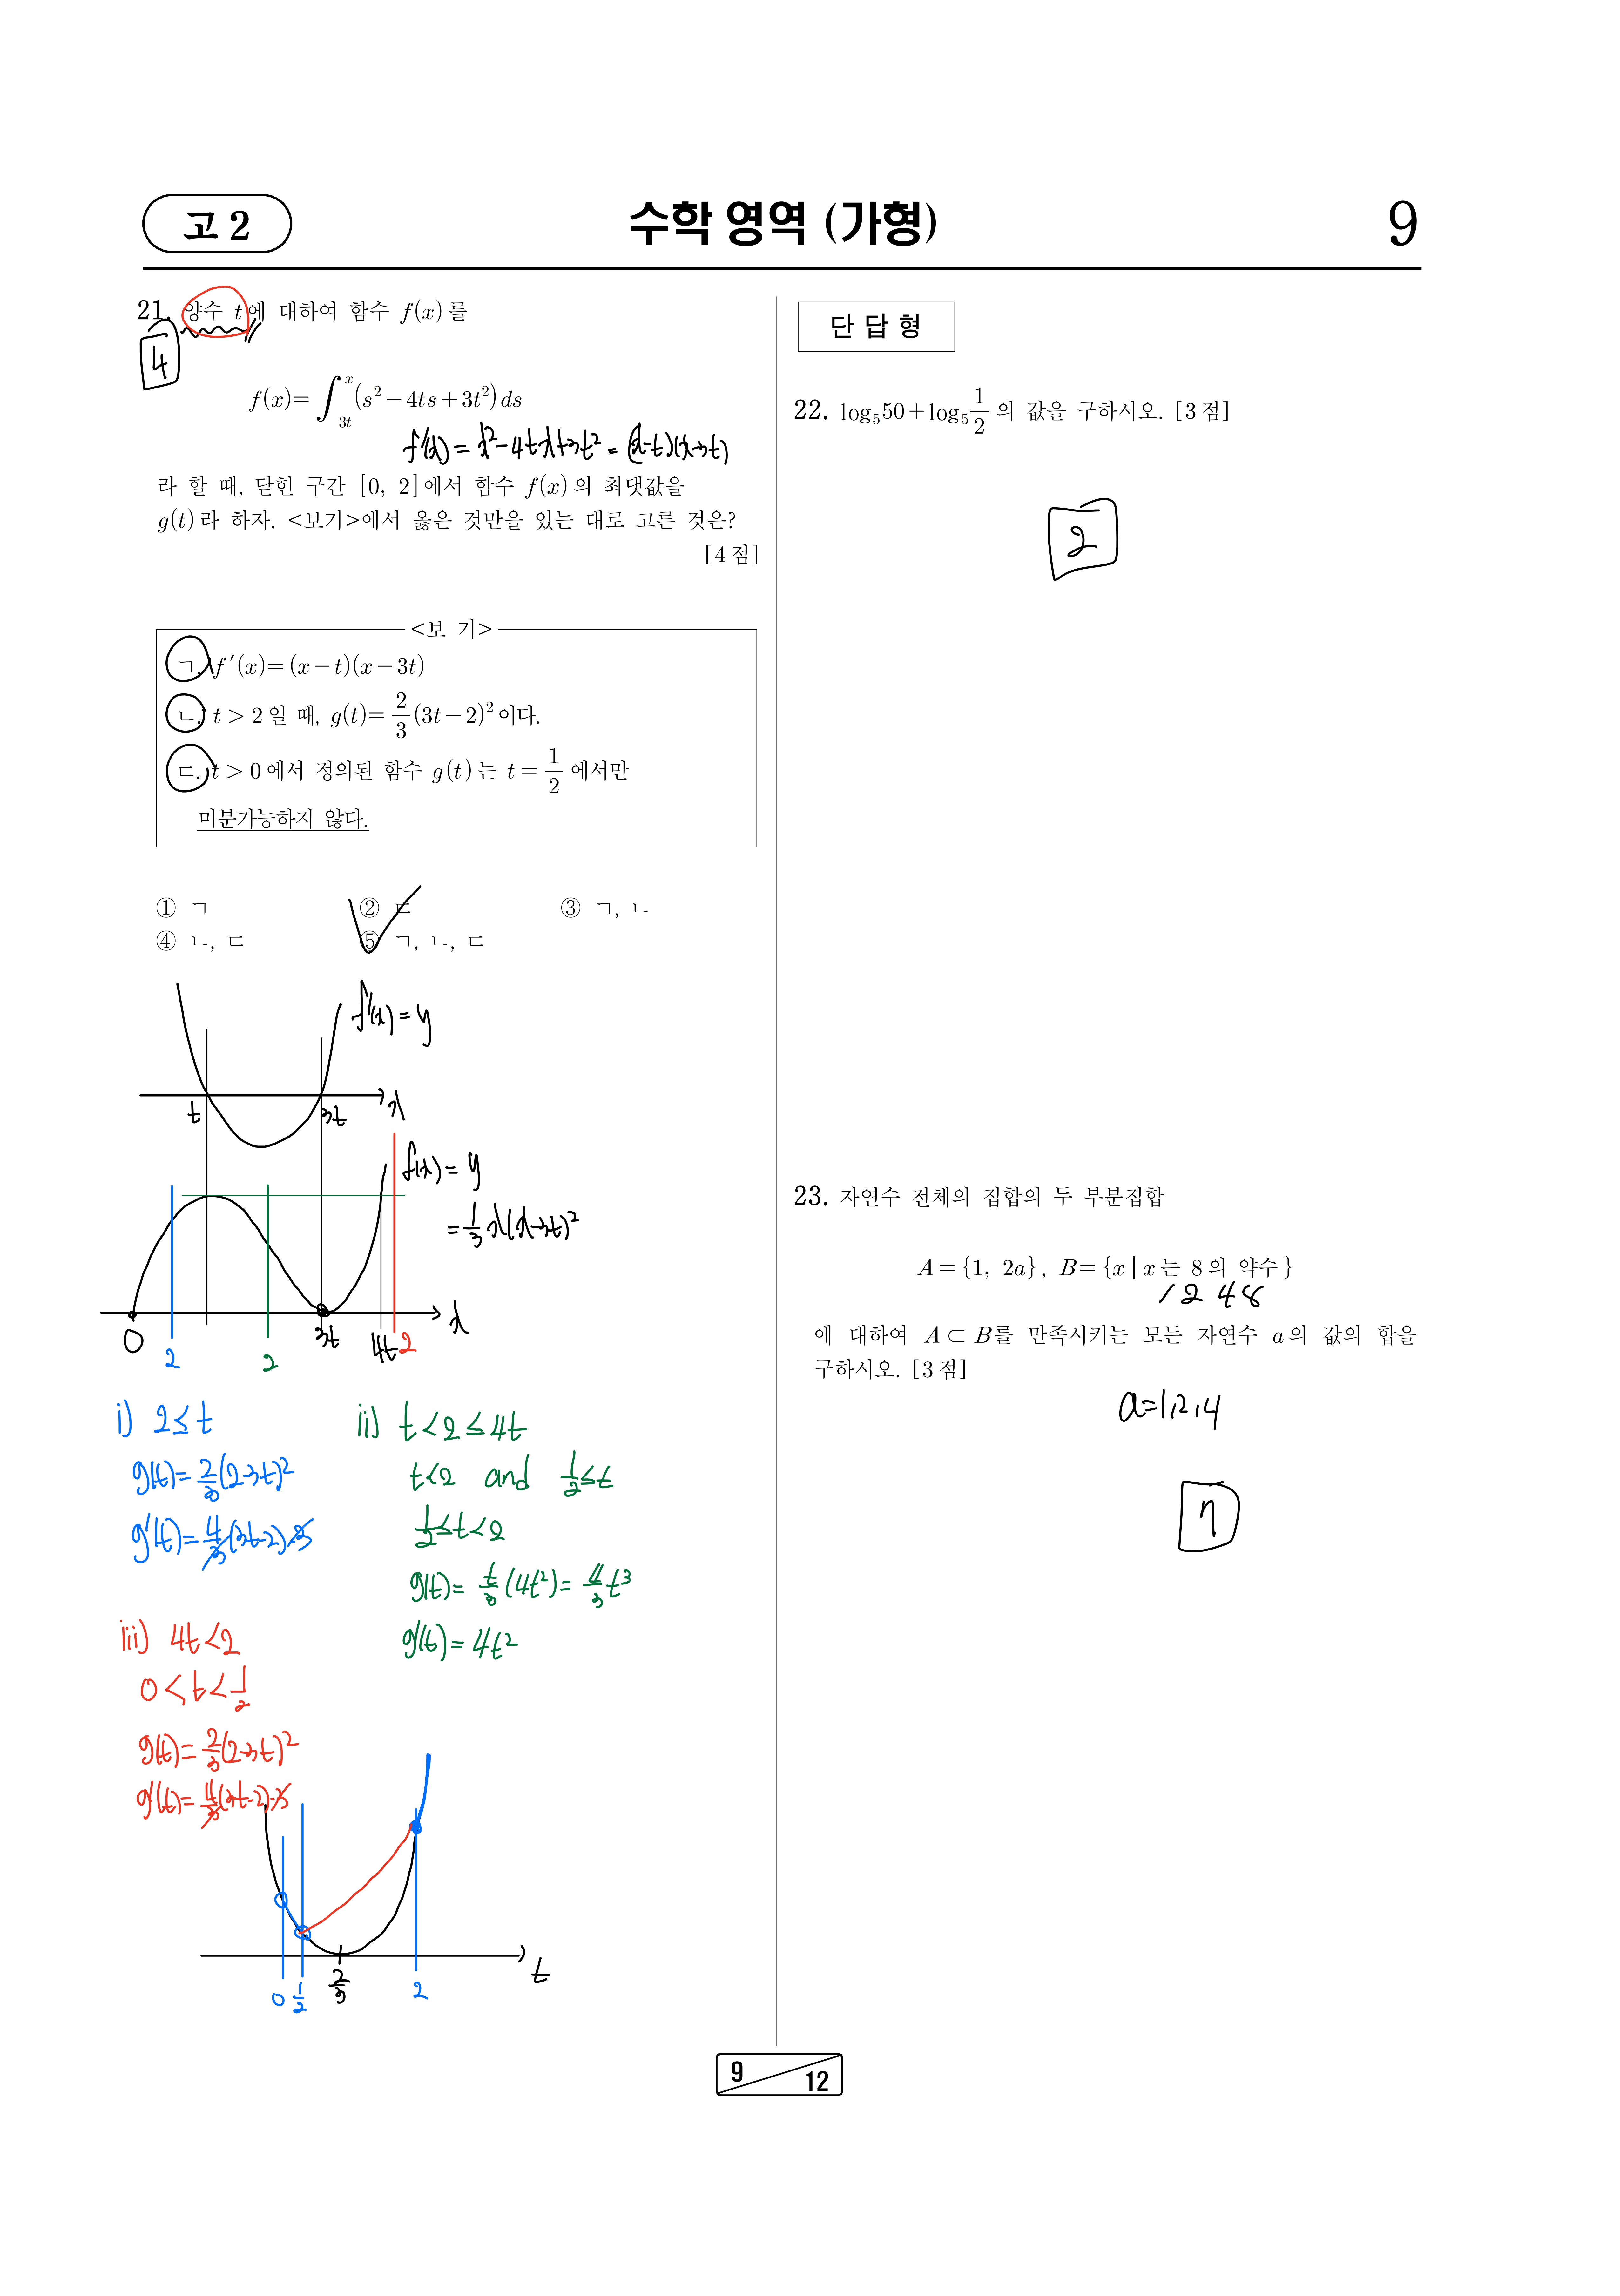 고 2
수학 영역 (가형)
9
21. 양수 t에 대하여 함수 f(x)를
4
f(x)=∫_{3t}^{x}(s²−4ts+3t²)ds
f'(x) = x²−4tx+3t² = (x−t)(x−3t)
라 할 때, 닫힌 구간 [0, 2]에서 함수 f(x)의 최댓값을
g(t)라 하자. <보기>에서 옳은 것만을 있는 대로 고른 것은?
[4점]
<보 기>
ㄱ. f′(x)=(x−t)(x−3t)
ㄴ. t>2일 때, g(t)=2/3(3t−2)²이다.
ㄷ. t>0에서 정의된 함수 g(t)는 t=1/2에서만
미분가능하지 않다.
① ㄱ ② ㄷ ③ ㄱ, ㄴ
④ ㄴ, ㄷ ⑤ ㄱ, ㄴ, ㄷ
f'(x) = y
t 3t x
f(x) = y
= 1/3 x(x−3t)²
0 2 2 3t 4t 2 x
i) 2≤t
g(t) = 2/3(2−3t)²
g'(t) = 4/3(3t−2)·3
ii) t<2≤4t
t<2 and 1/2≤t
1/2≤t<2
g(t) = t/3(4t²) = 4/3t³
g'(t) = 4t²
iii) 4t<2
0<t<1/2
g(t) = 2/3(2−3t)²
g'(t) = 4/3(3t−2)·3
0 1/2 2/3 2 t
단 답 형
22. log₅50+log₅1/2의 값을 구하시오. [3점]
2
23. 자연수 전체의 집합의 두 부분집합
A={1, 2a}, B={x|x는 8의 약수}
1 2 4 8
에 대하여 A⊂B를 만족시키는 모든 자연수 a의 값의 합을
구하시오. [3점]
a=1,2,4
7
9
12